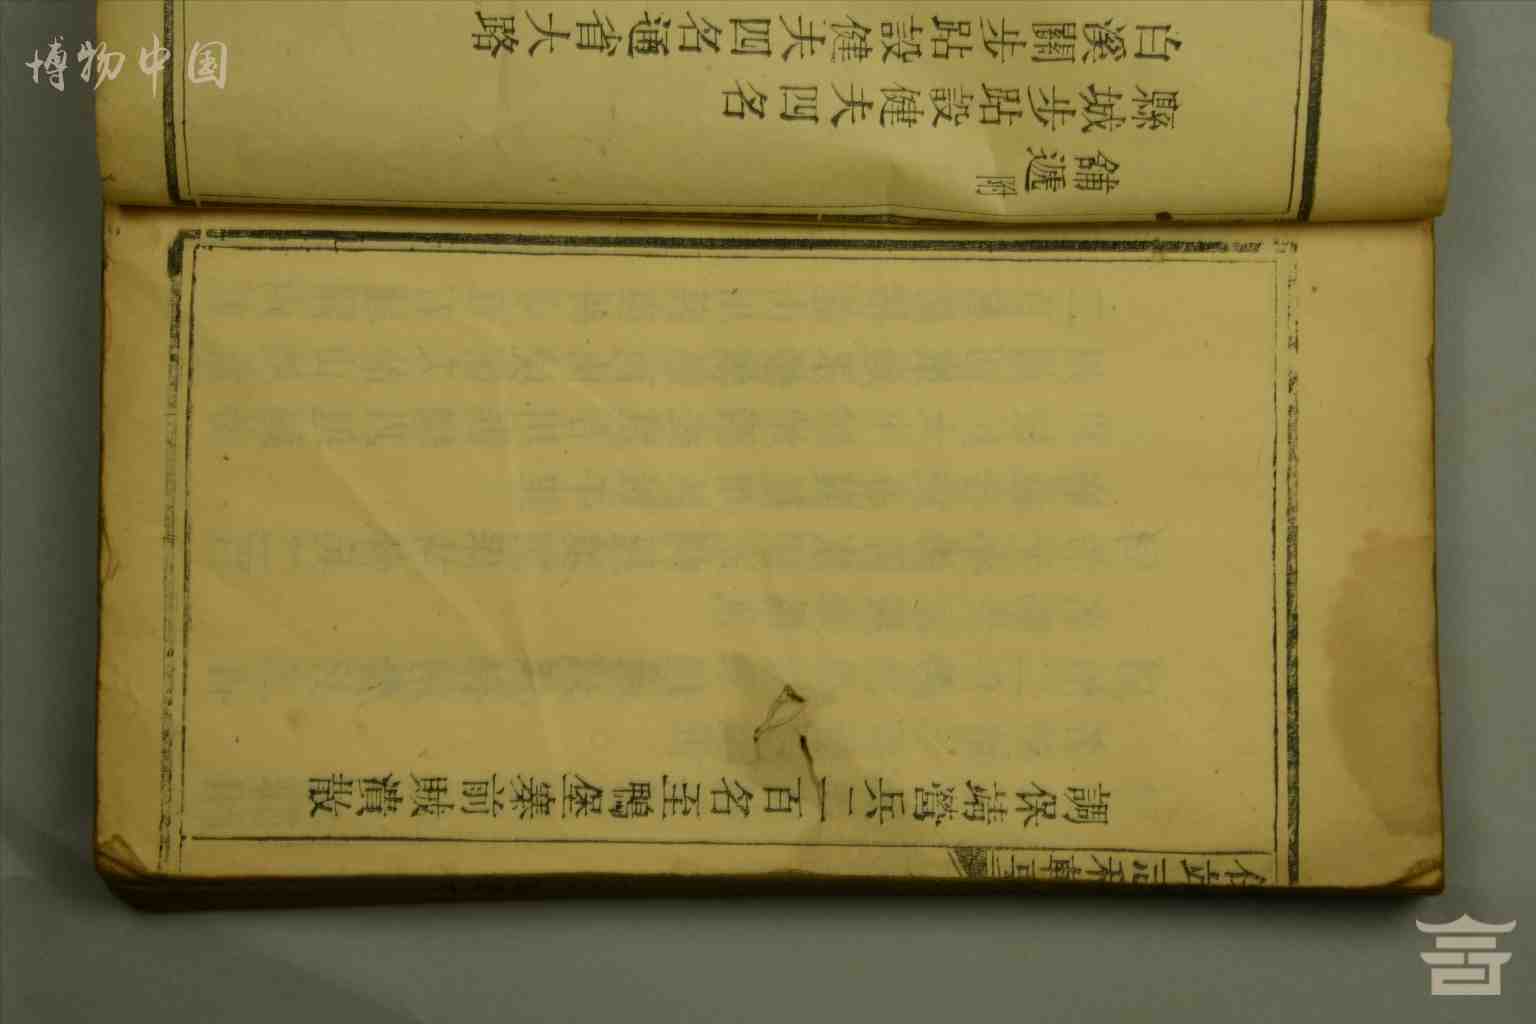 調保靖營兵二百名至鴨堡寨前賊潰散
舖遞附
縣城步站設健夫四名
白溪關步站設健夫四名通省大路
博物中国